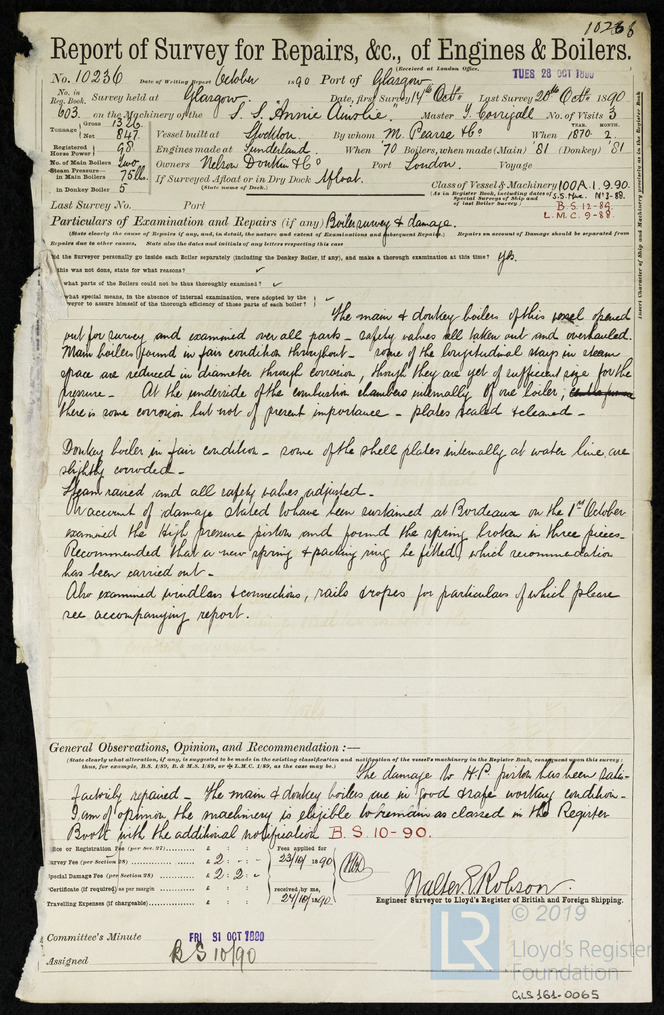 10236
Report of Survey for Repairs, &c., of Engines & Boilers.
(Received at London Office,
TUES 28 OCT 1890
No. 10236 Date of Writing Report October 1890 Port of Glasgow
No. in Reg. Book. Survey held at Glasgow Date, first Survey 14th Octr. Last Survey 20th Octr. 1890
603. on the Machinery of the S. S. "Annie Ainslie." Master J. Corrigall No. of Visits 3
Tonnage Gross 1326 Net 847 Vessel built at Stockton. By whom M. Pearse & Co When 1870 YEAR. 2 MONTH.
Registered Horse Power 98 Engines made at Sunderland. When '70 Boilers, when made (Main) '81 (Donkey) '81
No. of Main Boilers Two Owners Nelson Donkin & Co Port London. Voyage
Steam Pressure— in Main Boilers 75 lbs. If Surveyed Afloat or in Dry Dock Afloat.
(State name of Dock.)
in Donkey Boiler 5
Class of Vessel & Machinery 100A.1.9.90.
(As in Register Book, including dates of Special Surveys of Ship and of last Boiler Survey) S.S. Nwc. No 3-88.
B.S. 12-89.
L.M.C. 9-88.
Last Survey No. Port
Particulars of Examination and Repairs (if any) Boiler survey & damage.
(State clearly the cause of Repairs if any, and, in detail, the nature and extent of Examinations and subsequent Repairs.) Repairs on account of Damage should be separated from
Repairs due to other causes, State also the dates and initials of any letters respecting this case
Did the Surveyor personally go inside each Boiler separately (including the Donkey Boiler, if any), and make a thorough examination at this time? yes.
this was not done, state for what reasons?
what parts of the Boilers could not be thus thoroughly examined?
what special means, in the absence of internal examination, were adopted by the
veyor to assure himself of the thorough efficiency of those parts of each boiler?
The main & donkey boilers of this vessel opened
out for survey and examined over all parts - safety valves all taken out and overhauled.
Main boiler found in fair condition throughout - some of the longitudinal stays in steam
space are reduced in diameter through corrosion, though they are yet of sufficient size for the
pressure - At the underside of the combustion chambers internally of one boiler,
there is some corrosion but not of present importance - plates scaled & cleaned -
Donkey boiler in fair condition - some of the shell plates internally at water line, are
slightly corroded -
Steam raised and all safety valves adjusted -
On account of damage stated to have been sustained at Bordeaux on the 1st October
examined the High pressure piston and found the spring broken in three pieces -
Recommended that a new spring & packing ring be fitted, which recommendation
has been carried out -
Also examined windlass & connections, rails & ropes for particulars of which please
see accompanying report.
General Observations, Opinion, and Recommendation :—
(State clearly what alteration, if any, is suggested to be made in the existing classification and notification of the vessel's machinery in the Register Book, consequent upon this survey :
thus, for example, B.S. 1/89, B. & M.S. 1/89, or L.M.C. 1/89, as the case may be.)
The damage to H.P. piston has been satis-
factorily repaired - The main & donkey boilers are in good & safe working condition -
I am of opinion the machinery is eligible to remain as classed in the Register
Book with the additional notification B.S. 10-90.
ffice or Registration Fee (per Sec. 27) £ : :
Survey Fee (per Section 28) £ 2 : - : -
Special Damage Fee (per Section 28) £ 2 : 2 : -
Certificate (if required) as per margin £ : :
Travelling Expenses (if chargeable) £ : :
Fees applied for
23/10/1890
received by me,
24/10/1890
Walter E. Robson.
Engineer Surveyor to Lloyd's Register of British and Foreign Shipping.
Committee's Minute FRI 31 OCT 1890
Assigned B S 10/90
LR
© 2019
Lloyd's Register
Foundation
GLS161-0065